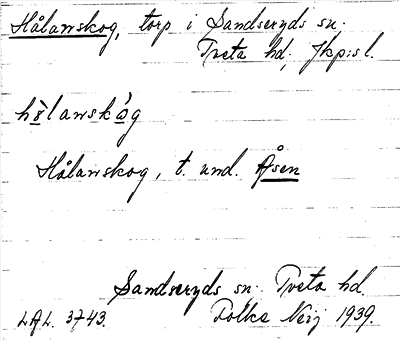 Hålanskog, torp i Sandseryds sn.
Tveta hd, Jkpgsl.
hòlanskóg
Hålanskog, t. und. Åsen
Sandseryds sn. Tveta hd.
LAL. 3743. Folke Neij 1939.